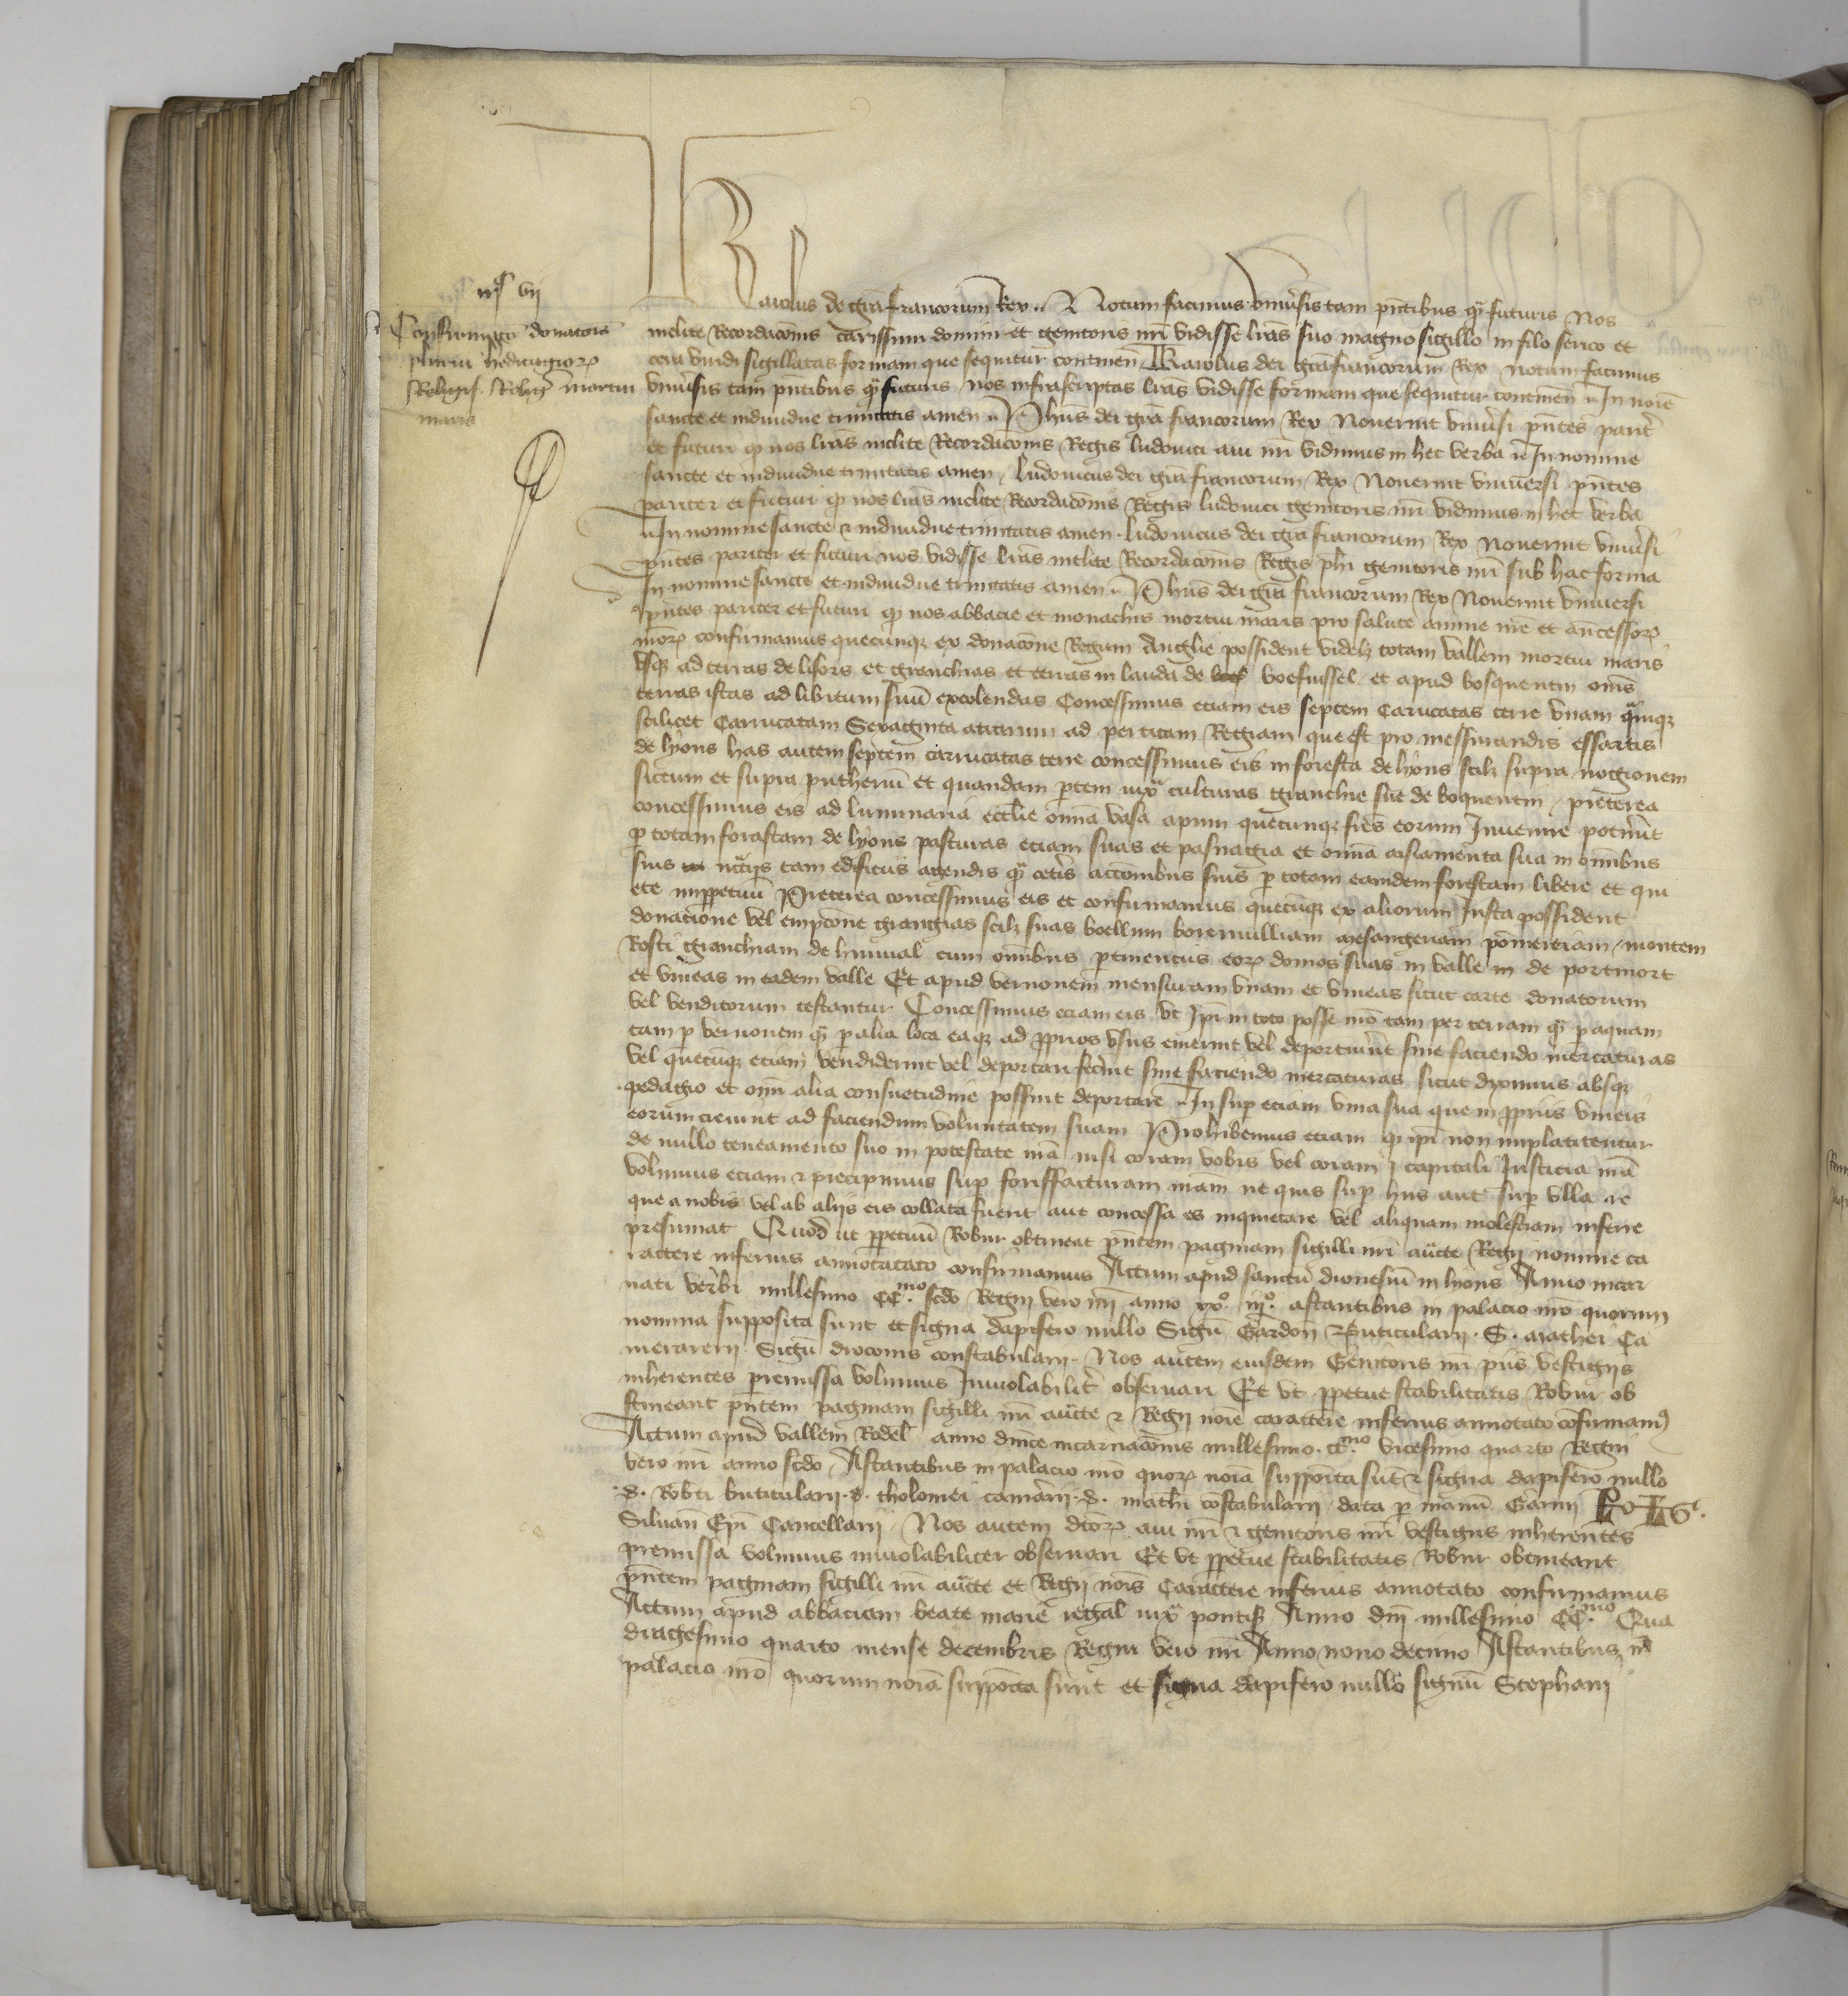 iiijᶜ vij
Confirmatio donationis
plurium hedingiorum
Religiosis Relig̃ mortui
maris
Karolus dei gra Francorum Rex Notum facimus vniuersis tam pñtibus q̃ futuris Nos
inclite Recordacõis carissimi domini et genitoris nr̃i vidisse lr̃as suo magno sigillo in filo serico et
cera viridi sigillatas formam que sequitur continen̄ Karolus dei gr̃a francorum Rex notum facimus
vniũsis tam pñtibus q̃ futuris nos infrascriptas lr̃as vidisse formam que sequitur continen̄ In noie
sancte et indiuidue trinitatis amen Phũs dei gr̃a francorum Rex Nouerint vniũsi pñtes parit̃
et futuri q̃ nos lr̃as inclite Recordacõis Regis ludouici aui nr̃i vidimus in hec verba In nomine
sancte et indiuidue trinitatis amen ludouicus dei gr̃a francorum Rex Nouerint vniuersi pñtes
pariter et futuri q̃ nos lr̃as inclite Recordacõis Regis ludouici genitoris nr̃i vidimus in hec verba
In nomine sancte et indiuidue trinitatis amen ludouicus dei gr̃a francorum Rex Nouerint vniũsi
pñtes pariter et futuri nos vidisse lr̃as inclite Recordacõis Regis phi genitoris nr̃i sub hac forma
In nomine sancte et indiuidue trinitatis amen Phũs dei gr̃a francorum Rex Nouerint vniuersi
pñtes pariter et futuri q̃ nos abbacie et monachis mortui maris pro salute anime nr̃e et añcessorꝝ
nr̃orꝝ confirmamus quecunqꝫ ex donacõne Regum Anglie possident videlꝫ totam vallem mortui maris
vsqꝫ ad terras de lisors et granchias et terras in lauda de boefuissel et apud bosquentin om̃s
terras istas ad libitum suũ excolendas Concessimus etiam eis septem Carucatas terre vnam quamqꝫ
scilicet Carrucatam Sexaginta acrarum ad perticam Regiam que est pro messurandis essartis
de lyons has autem septem carrucatas terre concessimus eis in foresta de lyons scilꝫ supra nogionem
siccum et supra putheum et quandam p̱tem iux̃ culturas granchie sue de boquentin preterea
concessimus eis ad luminaria eccl̃ie omnia vasa apum quecunqꝫ fr̃es eorum Inuenire potũint
p̱ totam forastam de lyons pasturas etiam suas et pasnagia et om̃ia aisiamenta sua in om̃ibus
suis ñcc̃ijs tam edificiis agendis q̃ cet̃is acc̃onibus suis p̱ totam eamdem forestam libere et qui
ete imp̱petuũ Preterea concessimus eis et confirmamus quecũqꝫ ex aliorum Iusta possident
donatione vel empc̃one grangias scilꝫ suas boellum boremulliam mesangeriam pomereiam montem
Rosti granchiam de hinual cum om̃ibus p̱tinentiis eorꝝ domos suas in valle in de portmort
et vineas in eadem valle Et apud vernonem mensuram vnam et vineas sicut carte donatorum
vel venditorum testantur Concessimus etiam eis vt Ip̃i in toto posse nr̃o tam per terram q̃ p̱ aquam
tam p̱ vernonem q̃ p̱ alia loca ea qꝫ ad p̱prios vsus emerint vel deportaũint siue faciendo mercaturas
vel quecũqꝫ etiam vendiderint vel deportari fec̃int siue faciendo mercaturas sicut dyximus absqꝫ
pedagio et om̃i alia consuetudine possint deportare In sup̱ etiam vina sua que in p̱priis vineis
eorum creuint ad faciendum voluntatem suam Prohibemus etiam q̃ ip̃i non inplacitentur
de nullo teneamento suo in potestate nr̃a nisi coram vobis vel coram capitali Iusticia nr̃a
volumus etiam ꝛ precipimus sup̱ forisfacturam nr̃am ne quis sup̱ hiis aut sup̱ vlla re
que a nobis vel ab alijs eis collata fuerit aut concessa es inquietare vel aliquam molestiam inferre
presumat Quod ut p̱petuũ Robur obtineat pñtem paginam sigilli nr̃i auc̃te Regij nominis ca
ractere inferius annotatato confirmamus Actum apud sanctũ dionesiũ in lyons Anno incar
nati verbi millesimo CC.ᵐᵒ scdo Regni vero nr̃i anno xxᵒ. iijᵒ. astantibus in palacio nr̃o quorum
nomina supposita sunt et signa dapifero nullo Signũ Gardon Buticularij . S . mathei Ca
merarerij Signũ droconis constabularij Nos autem eiusdem Genitoris nr̃i piis vestigijs
inherentes premissa volumus Inuiolabilit̃ obseruari Et vt p̱petue stabilitatis Robur ob
tineant pñtem paginam sigilli nr̃i auc̃te ꝛ Regij noĩe caractere inferius annotato cõfirmam⁹
Actum apud vallem Rodol̃ anno dñice incarnacõis millesimo . CC.ᵐᵒ vicesimo quarto Regni
vero nr̃i anno scdo Astantibus in palacio nr̃o quorꝝ noĩa suppoĩta sũt ꝛ signa dapifero nullo
. S . Robti buticularij . S . tholomei camerarij . S . mathi cõstabularij data p̱ manũ Garini
Siluan̄ Ep̃i Cancellarij Nos autem dc̃orꝝ aui nr̃i ꝛ genitoris nr̃i vestigiis inherentes
premissa volumus inuiolabiliter obseruari Et vt p̱petue stabilitatis Robur obtineant
pñtem paginam sigilli nr̃i auc̃te et Regij noĩs Caractere inferius annotato confirmamus
Actum apud abbaciam beate marie regal̃ iux̃ pontis Anno dñi millesimo CC.ᵐᵒ Qua
dragesimo quarto mense decembris Regni vero nr̃i Anno nono decimo Astantibus in
palacio nr̃o quorum noĩa suppoĩta sunt et signa dapifero nullo signũ Stephani